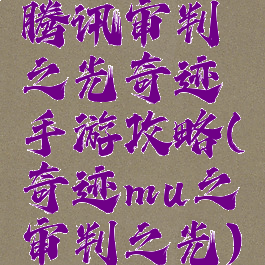 腾讯审判
之光奇迹
手游攻略(
奇迹mu之
审判之光)